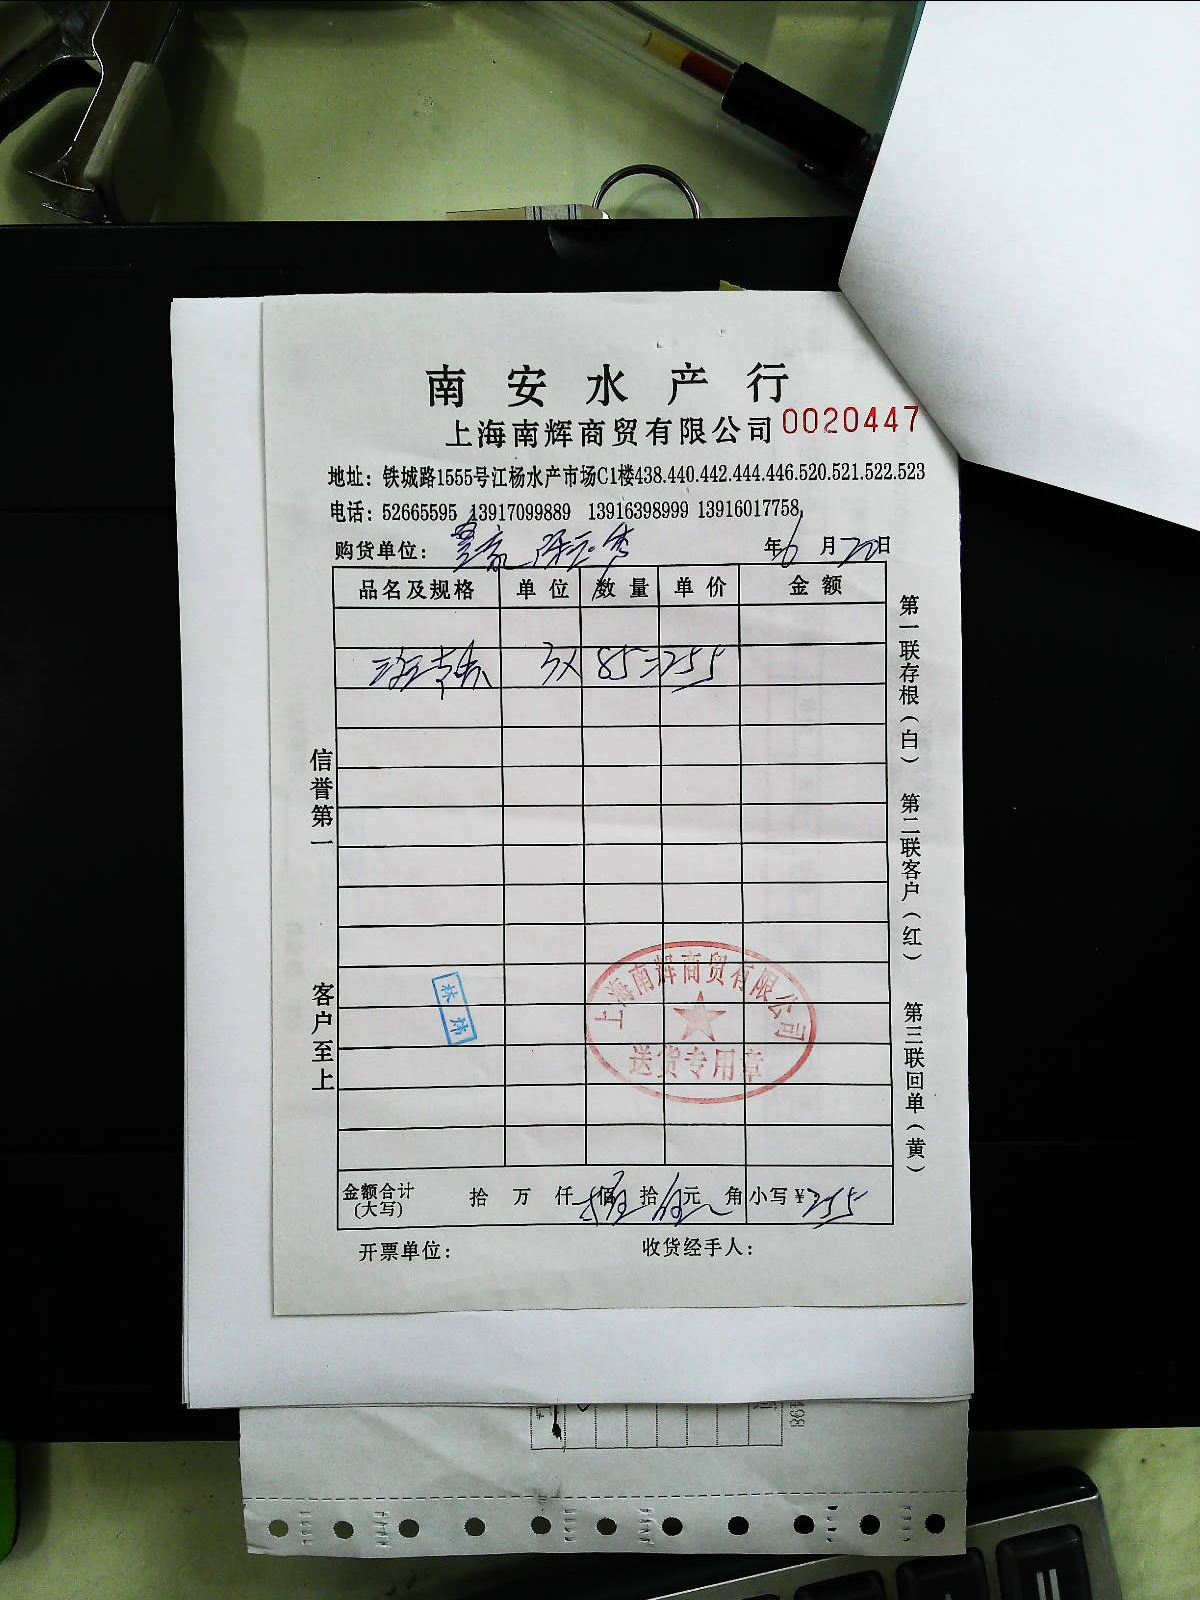 南安水产行
上海南辉商贸有限公司 0020447
地址：铁城路1555号江杨水产市场C1楼438.440.442.444.446.520.521.522.523
电话：52665595 13917099889 13916398999 13916017758
购货单位： 年6月20日
品名及规格 单位 数量 单价 金额
3X 85=255
信誉第一
客户至上
第一联存根（白）
第二联客户（红）
第三联回单（黄）
林炜
上海南辉商贸有限公司
送货专用章
金额合计 拾 万 仟 佰 拾 元 角 小写¥255
(大写)
开票单位： 收货经手人：